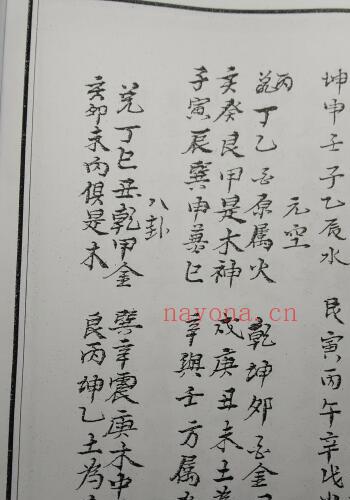 坤申壬子乙辰水 艮寅丙午辛戌
元空
丙丁乙酉原属火 乾坤卯酉金
亥癸艮甲是木神 戌庚丑未土为
子寅辰巽申兼巳 辛與壬方属
八卦
兑丁巳丑乾甲金 巽辛震庚木中
亥卯未丙俱是木 艮丙坤乙土为
nayona.cn